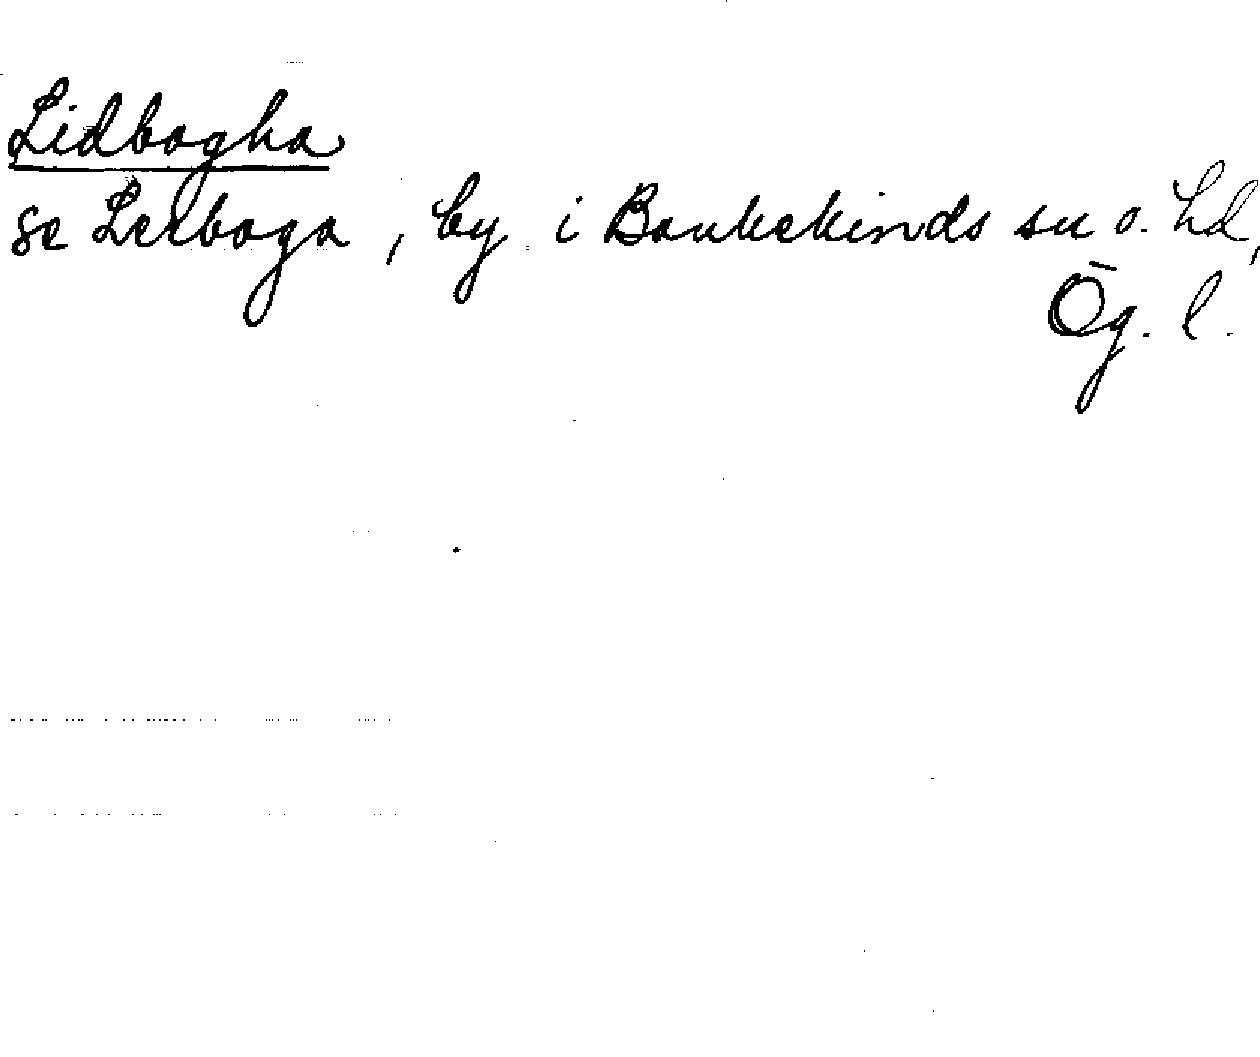 Lidbogha
se Lerboga, by i Bankekinds sn o. hd,
Ög. l.